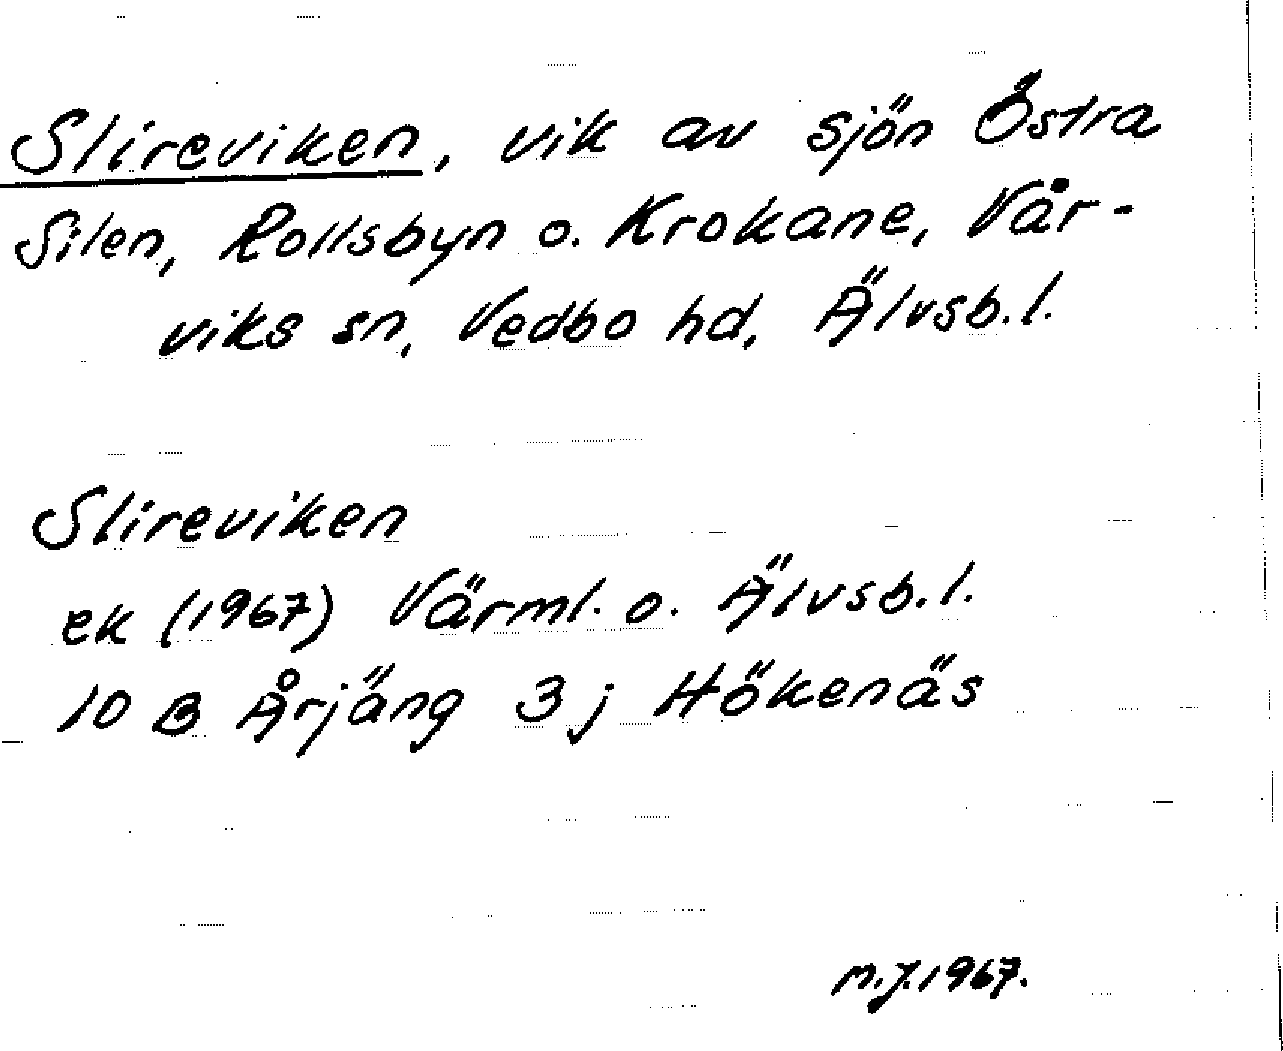 Slireviken, vik av sjön Östra
Silen, Rollsbyn o. Krokane, Vår-
viks sn, Vedbo hd, Älvsb.l.
Slireviken
ek (1967) Värml. o. Älvsb.l.
10 B Årjäng 3 j Hökenäs
M.J.1967.